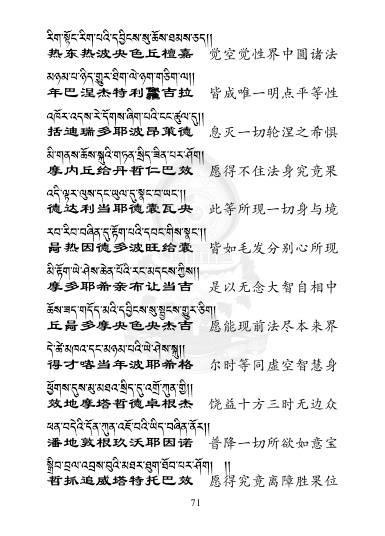 རིག་སྟོང་རིག་པའི་དབྱིངས་སུ་ཆོས་ཐམས་ཅད།།
热东热波央色丘檀嘉 觉空觉性界中圆诸法
མཉམ་པ་ཉིད་གྱུར་ཐིག་ལེ་ཉག་གཅིག་ལ།།
年巴涅杰特利吉拉 皆成唯一明点平等性
འཁོར་འདས་རེ་དོགས་ཞིག་པའི་ངང་ཚུལ་དུ།།
括迪瑞多耶波昂策德 息灭一切轮涅之希惧
མི་གནས་ཆོས་སྐུའི་གཏན་སྲིད་ཟིན་པར་ཤོག།
摩内丘给丹哲仁巴效 愿得不住法身究竟果
འདི་ལྟར་ལུས་དང་ཡུལ་དུ་སྣང་བ་ཡང་།།
德达利当耶德囊瓦央 此等所现一切身与境
རབ་རིབ་བཞིན་དུ་རྟོག་པའི་དབང་གིས་སྣང་།།
昌热因德多波旺给囊 皆如毛发分别心所现
མི་རྟོག་ཡེ་ཤེས་ཆེན་པོའི་རང་མདངས་ཀྱིས།།
摩多耶希亲布让当吉 是以无念大智自相中
ཆོས་ཟད་གདོད་མའི་དབྱིངས་སུ་སྦྱངས་གྱུར་ཅིག།
丘昌多摩央色央杰吉 愿能现前法尽本来界
དེ་ཚེ་མཁའ་དང་མཉམ་པའི་ཡེ་ཤེས་སྐུ།།
得才喀当年波耶希格 尔时等同虚空智慧身
ཕྱོགས་དུས་མུ་མཐའ་སྲིད་དུ་འགྲོ་ཀུན་གྱི།།
效地摩塔哲德卓根杰 饶益十方三时无边众
ཕན་བདེའི་དོན་ཀུན་འཇོ་བའི་ཡིད་བཞིན་ནོར།།
潘地敦根玖沃耶因诺 普降一切所欲如意宝
སྒྲིབ་བྲལ་འབྲས་བུའི་མཐར་ཐུག་ཐོབ་པར་ཤོག།   །།
哲抓追威塔特托巴效 愿得究竟离障胜果位
71